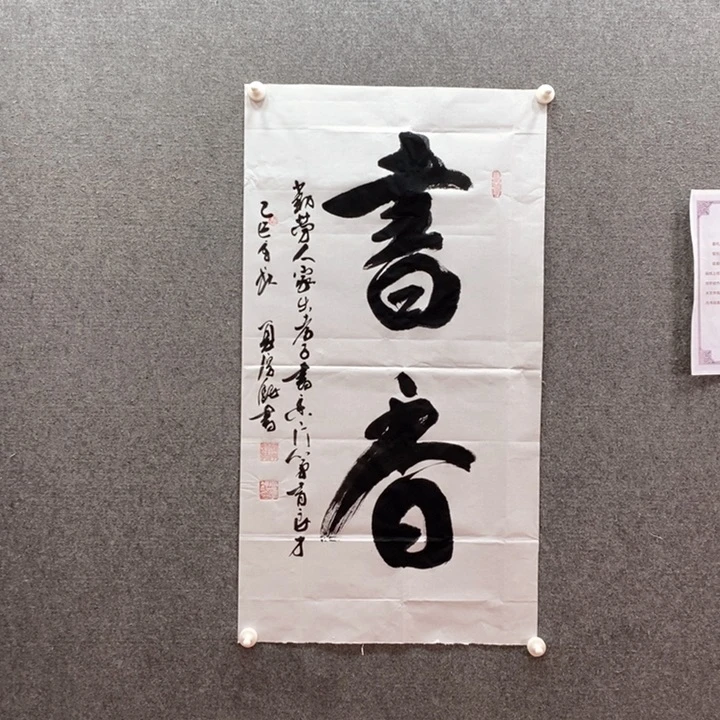 書香
勤勞人家出孝子書香门第育良才
乙巳 書